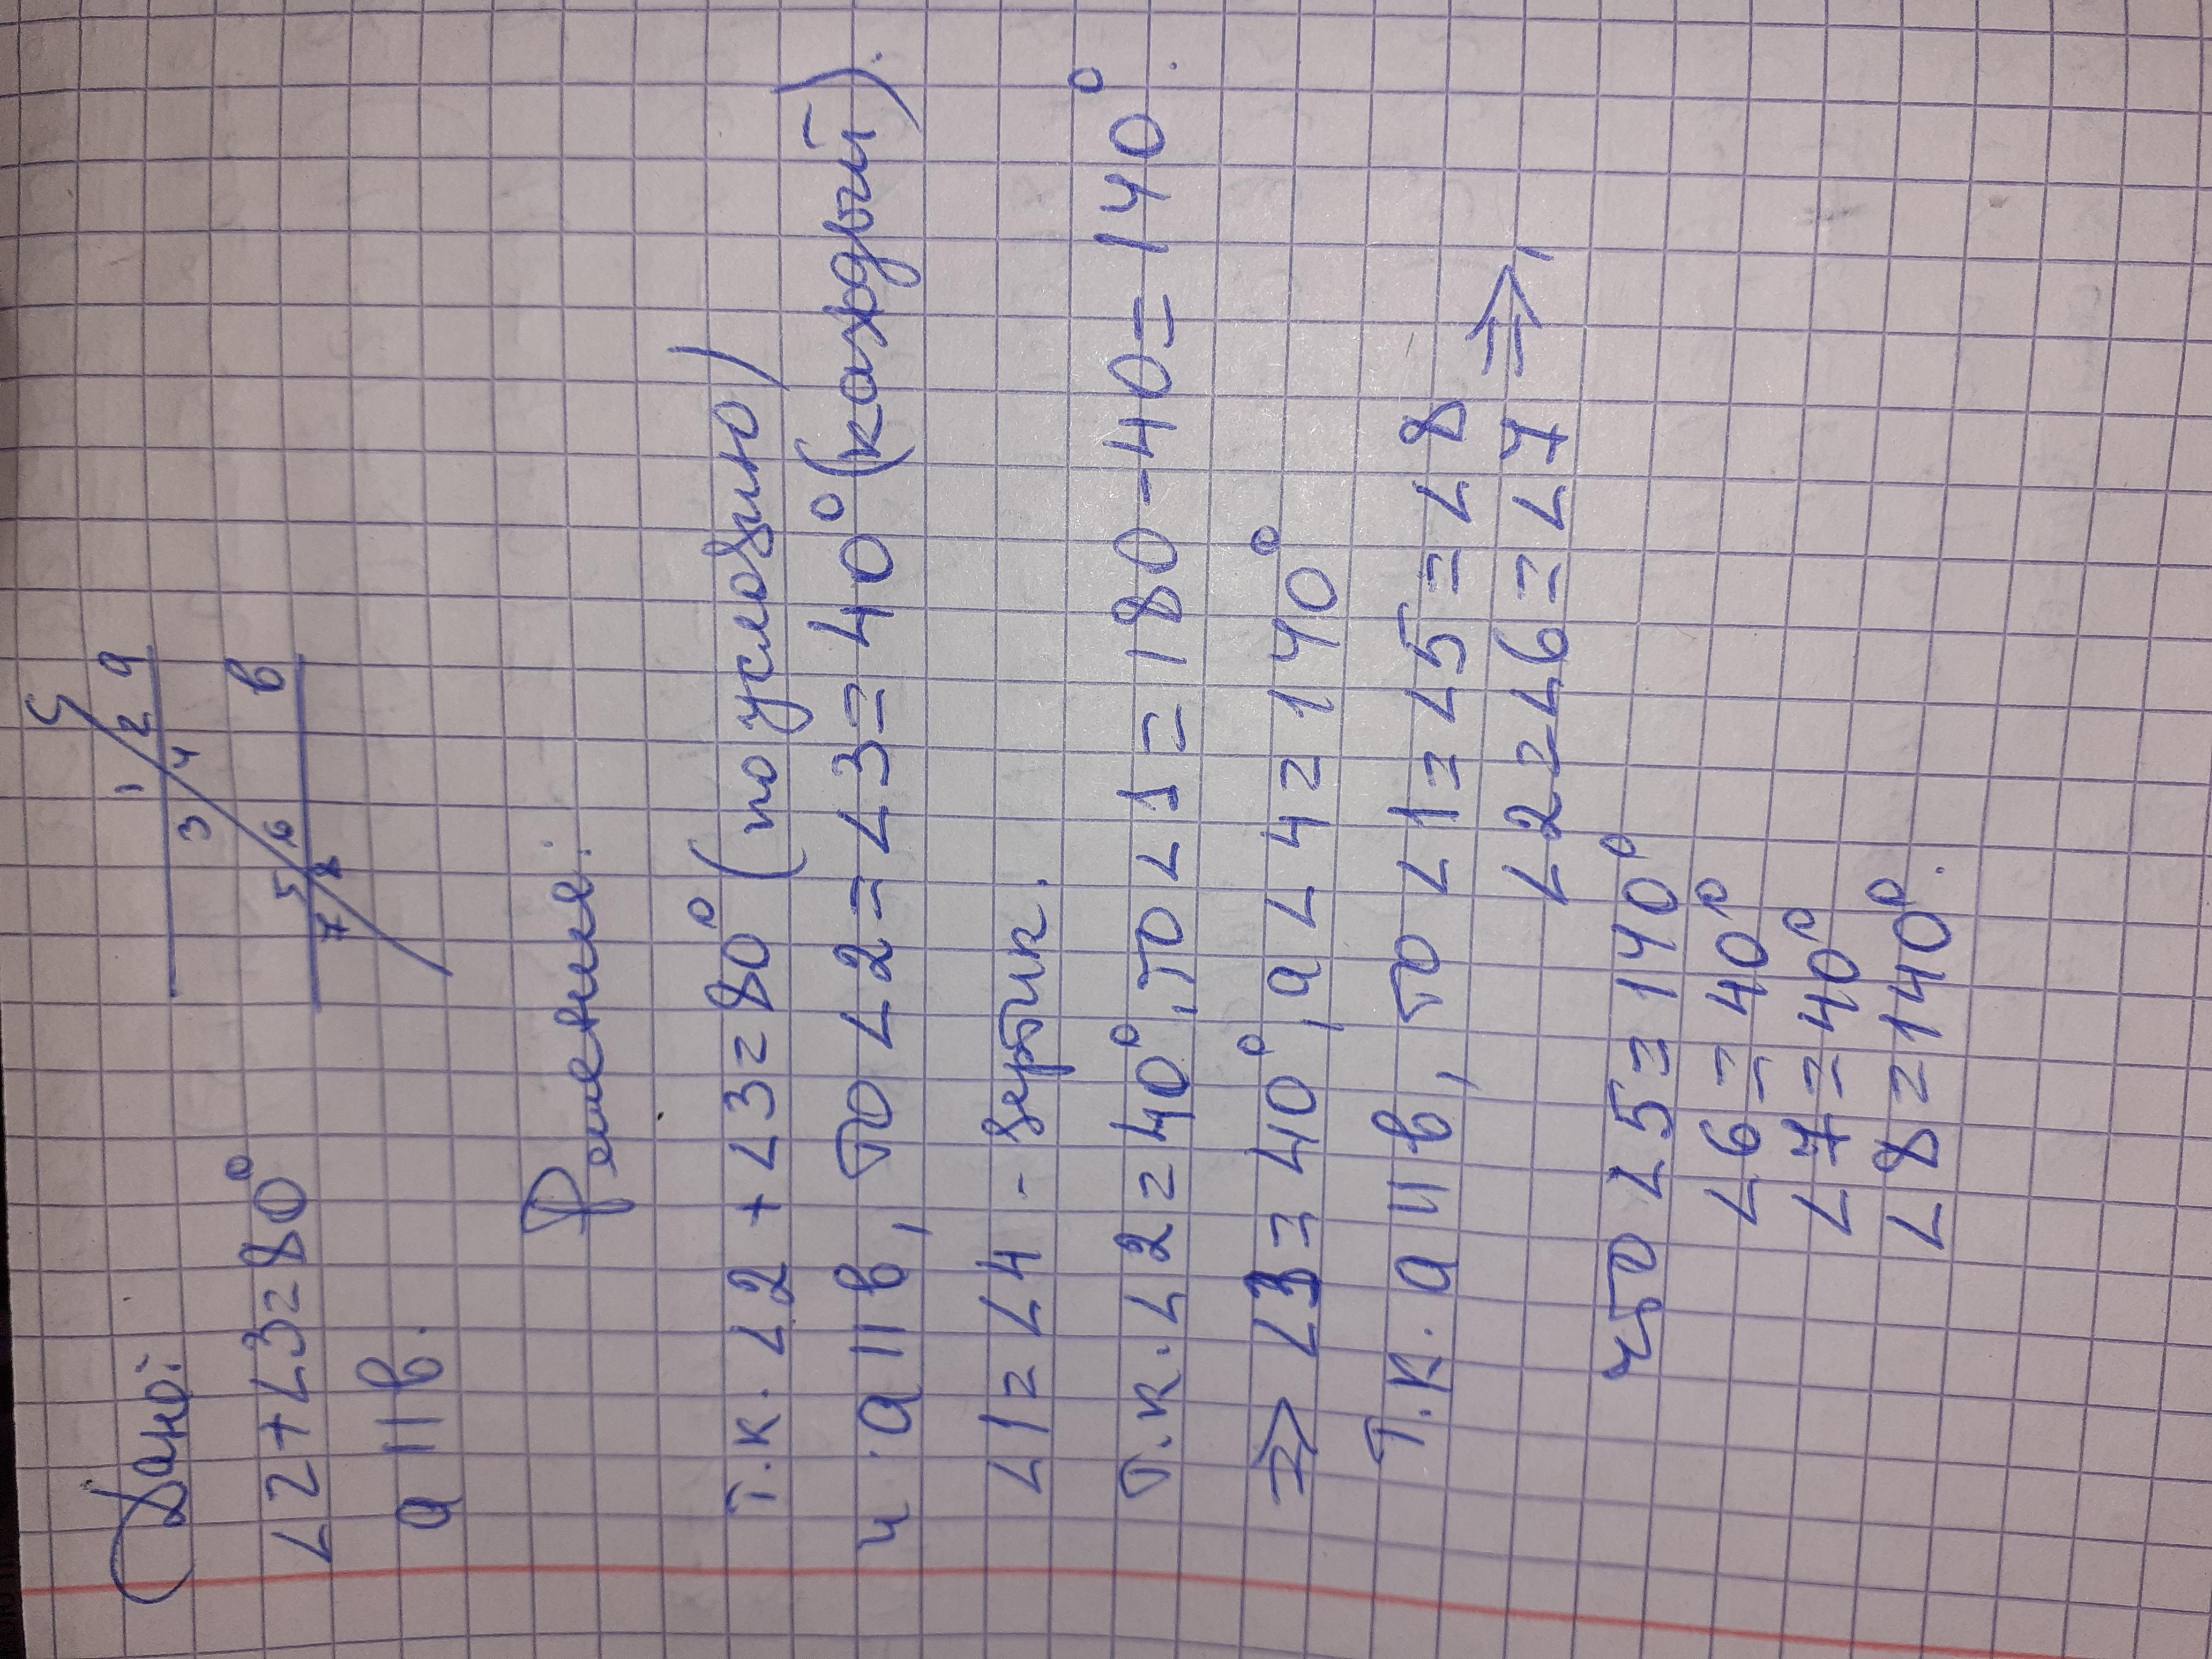 Дано:
∠2+∠3=80°
а || в.
с
1 2 а
3 4
5 6 в
7 8
Решение:
т.к. ∠2 + ∠3=80° (по условию)
и а || в, то ∠2=∠3=40° (каждый).
∠1=∠4 - вертик.
т.к. ∠2=40°, то ∠1=180-40=140°.
⇒ ∠3=40°, а ∠4=140°
Т.к. а || в, то ∠1=∠5=∠8
∠2=∠6=∠7 ⇒,
что ∠5=140°
∠6=40°
∠7=40°
∠8=140°.